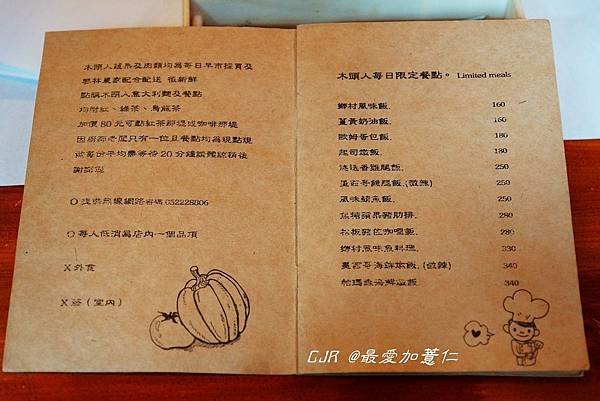 木頭人蔬果及肉類均為每日早市採買及
雲林農家配合配送 很新鮮
點購木頭人意大利麵及餐點
均附紅、綠茶、烏龍茶
加價80元可點紅茶那堤或咖啡那堤
因廚師老闆只有一位且餐點均為現點現
做每份平均需等待20分鐘請體諒稍後
謝謝您
○ 提供無線網路密碼 032228806
○ 每人低消為店內一個品項
X 外食
X 菸(室內)
木頭人每日限定餐點。 Limited meals
鄉村風味飯. 160
薑黃奶油飯. 160
歐姆蛋包飯. 180
起司燉飯. 180
迷迭香雞腿飯. 250
墨西哥雞腿飯.(微辣) 250
風味鯛魚飯. 250
焦糖蘋果豬肋排. 280
松板豬佐咖哩飯. 280
鄉村風味魚料理. 330
墨西哥海鮮燉飯.(微辣) 340
帕瑪森海鮮燉飯. 340
CJR @最愛加薏仁